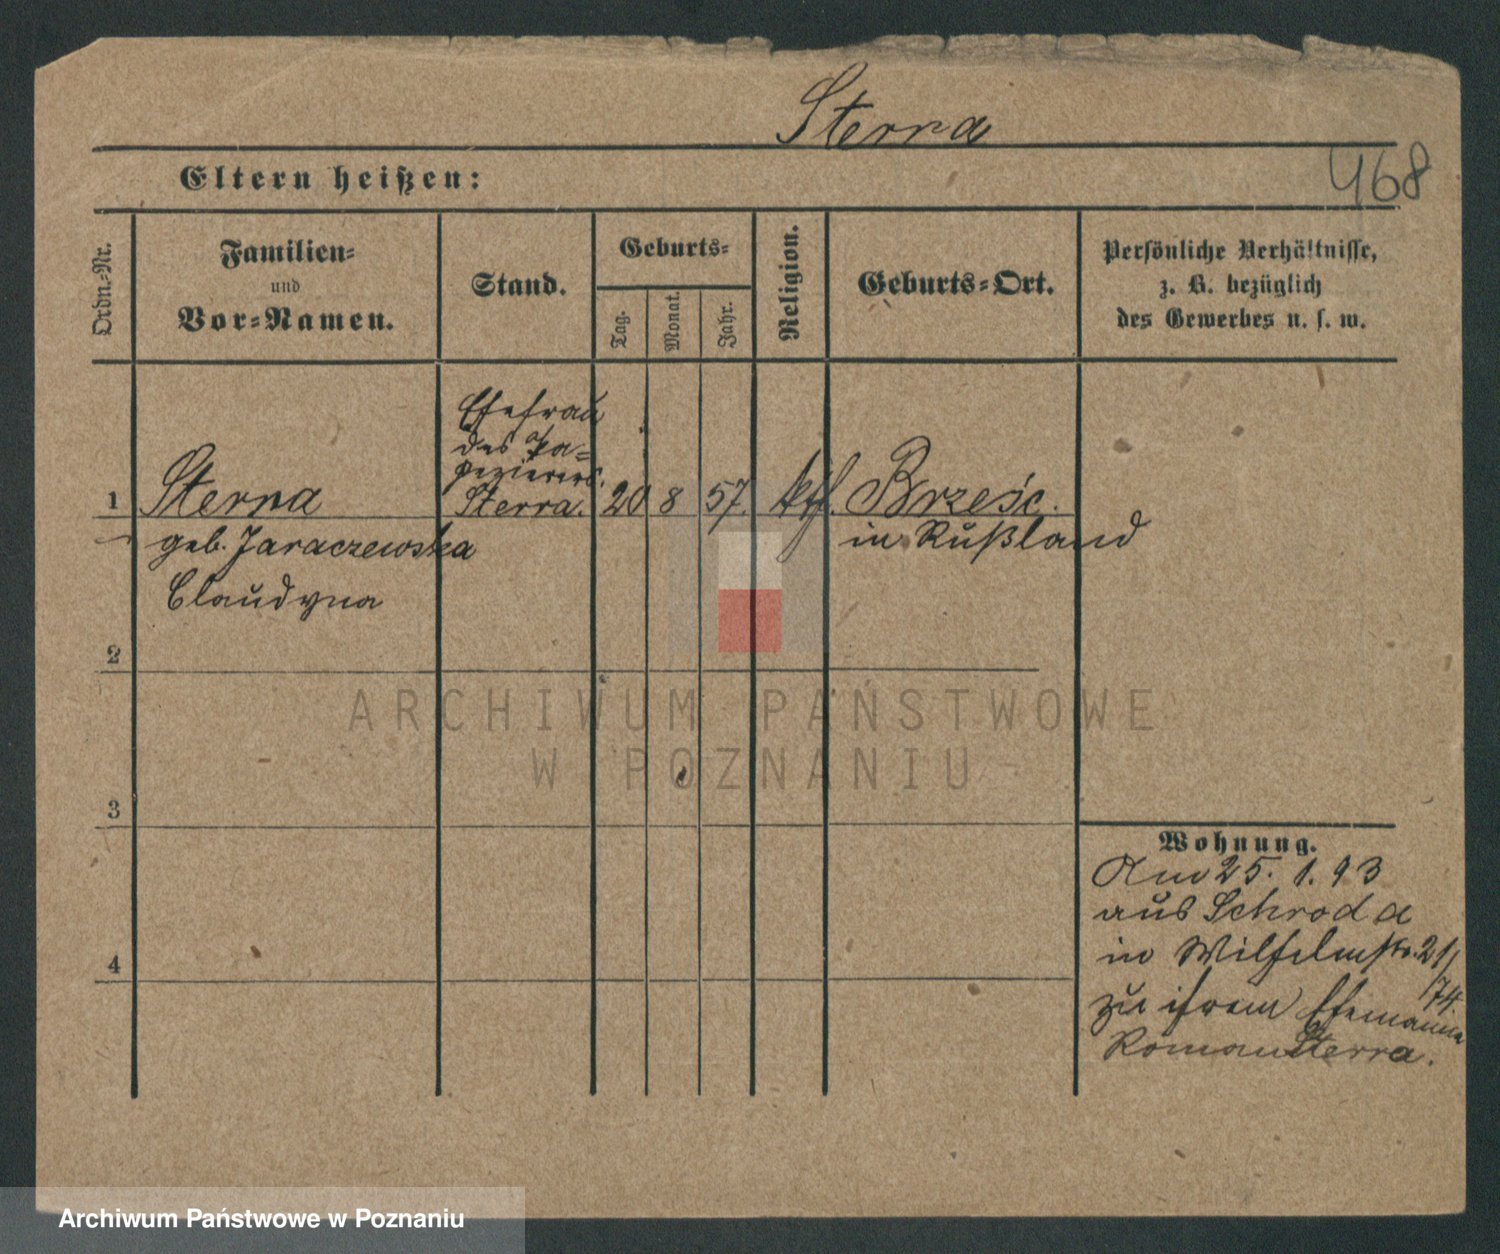 Sterna
468
Eltern heißen:
Ordn.-Nr.
Familien-
und
Vor-Namen.
Stand.
Geburts-
Tag.
Monat.
Jahr.
Religion.
Geburts-Ort.
Persönliche Verhältnisse,
z. B. bezüglich
des Gewerbes u. s. w.
1
Sterna
geb. Jaraczewska
Claudyna
Ehefrau
des Ta-
pezierers
Sterra.
20
8
57.
kth.
Brześc.
in Rußland
2
3
4
Wohnung.
Am 25. 1. 93
aus Schroda
in Wilhelmstr. 21/
74.
zu ihrem Ehemanne
Roman Sterra.
ARCHIWUM PAŃSTWOWE
W POZNANIU
Archiwum Państwowe w Poznaniu